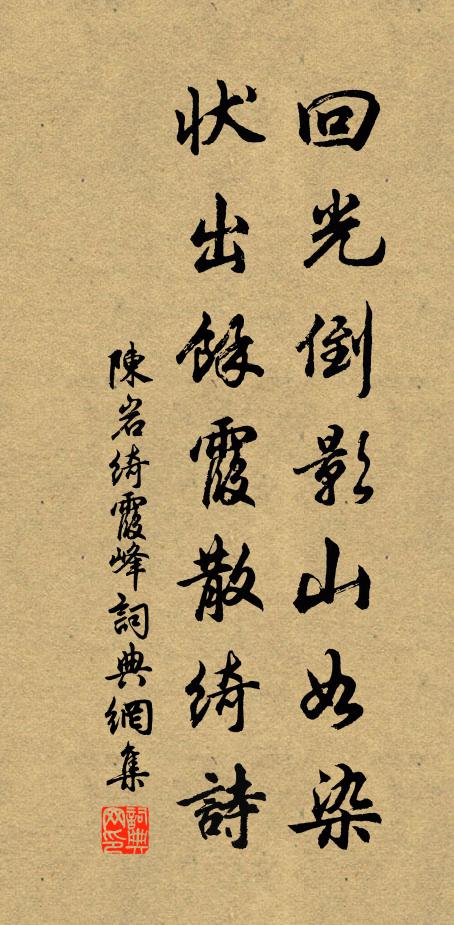 回光倒影山如染
状出餘霞散綺詩
陳岩綺霞峰詞典網集
詞典网印